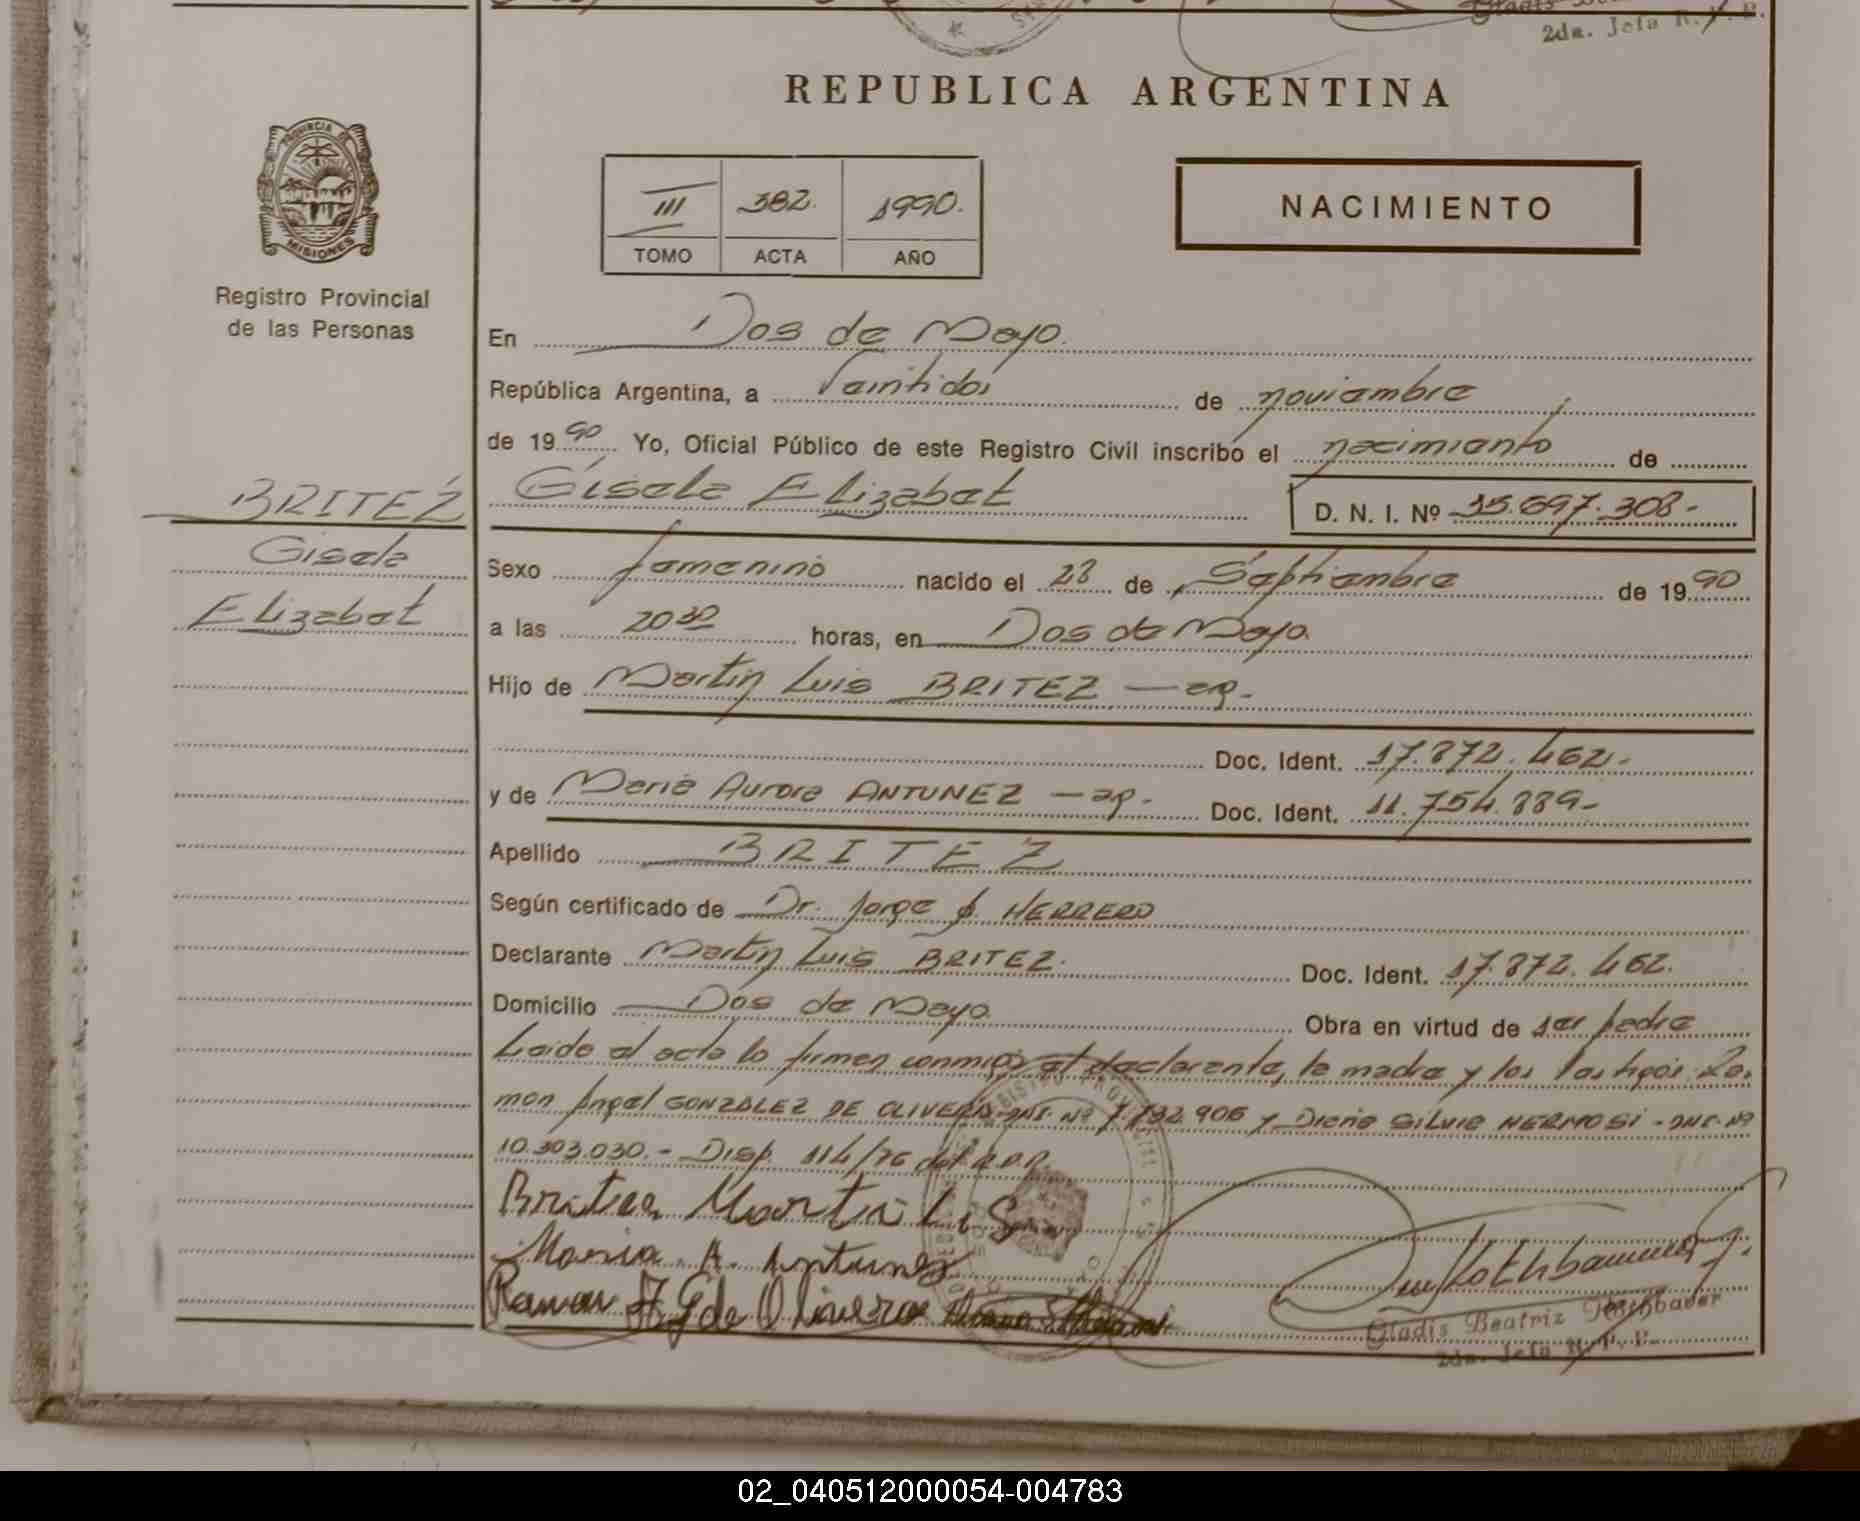 2da. Jefa R. P. P.
REPUBLICA ARGENTINA
PROVINCIA DE
MISIONES
III 382. 1990.
TOMO ACTA AÑO
NACIMIENTO
Registro Provincial
de las Personas
En Dos de Mayo.
República Argentina, a Veintidós de noviembre
de 1990 Yo, Oficial Público de este Registro Civil inscribo el nacimiento de
BRITEZ
Gisela Elizabet D. N. I. Nº 35.697.308.-
Gisela
Elizabet
Sexo femenino nacido el 28 de Septiembre de 1990
a las 20 30 horas, en Dos de Mayo.
Hijo de Martín Luis BRITEZ — ar.
Doc. Ident. 17.872.462.-
y de María Aurora ANTUNEZ — ar. Doc. Ident. 11.754.889-
Apellido BRITEZ
Según certificado de Dr. Jorge HERRERO
Declarante Martín Luis BRITEZ. Doc. Ident. 17.872.462.
Domicilio Dos de Mayo Obra en virtud de ser padre
Leida el acta lo firman conmigo el declarante, la madre y los testigos Ra-
mon Angel GONZALEZ DE OLIVERA-DNI-Nº 906 y Diana Silvia HERMOSI - DNI-Nº
10.303.030.- Disp. 114/76 del R.P.P.
Britez Martin
Maria. A. Antunez
Ramon A G de Olivera
Gladis Beatriz Rothbauer
2da. Jefa R. P. P.
02_040512000054-004783